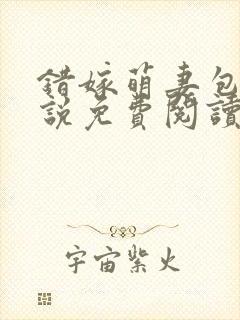 錯嫁萌妻包
說免費閱讀
宇宙紫火